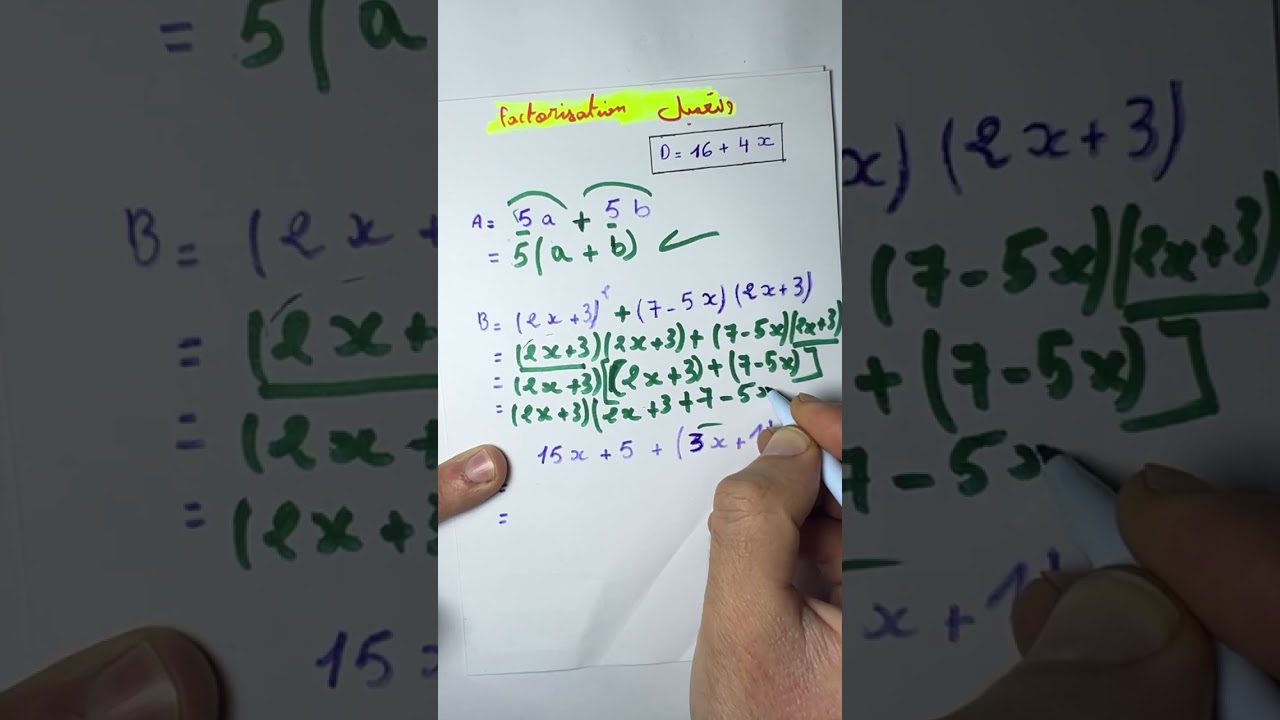 factorisation والتعميل
D = 16 + 4x
A = 5a + 5b
= 5(a + b)
B = (2x+3)² + (7-5x)(2x+3)
= (2x+3)(2x+3) + (7-5x)(2x+3)
= (2x+3)[(2x+3) + (7-5x)]
= (2x+3)(2x+3+7-5x
15x + 5 + (3x+1
=
=